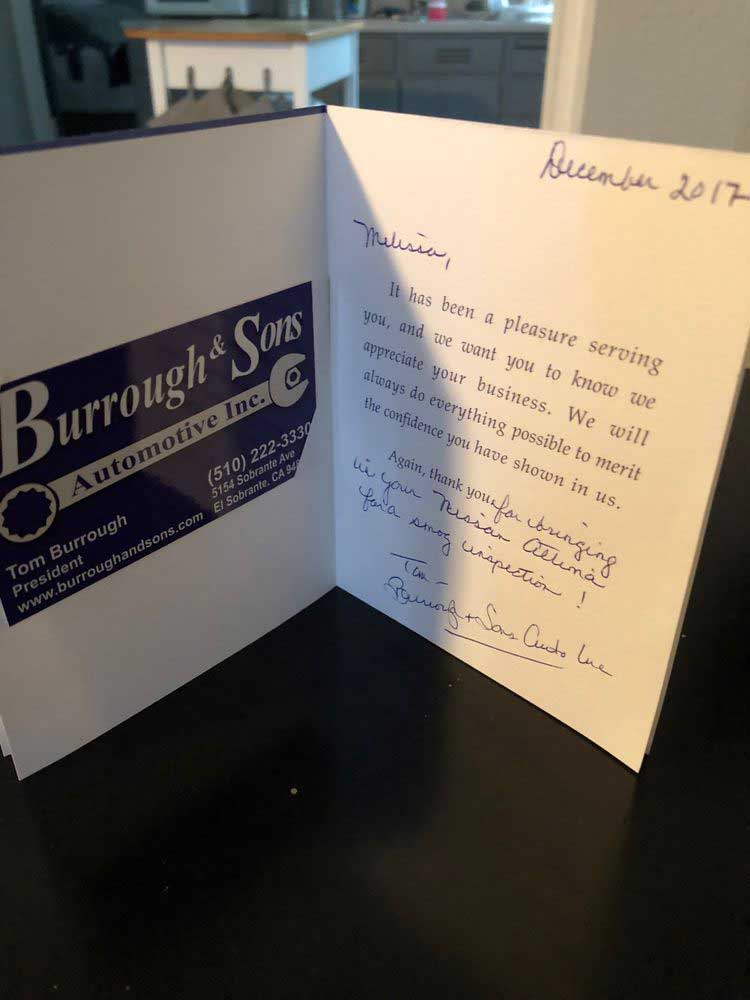 Burrough & Sons
Automotive Inc.
(510) 222-3330
5154 Sobrante Ave
El Sobrante, CA 94
Tom Burrough
President
www.burroughandsons.com
December 2017
Melissa,
It has been a pleasure serving
you, and we want you to know we
appreciate your business. We will
always do everything possible to merit
the confidence you have shown in us.
Again, thank you for bringing
in your Nissan Altima
for a smog inspection!
Tom -
Burrough + Sons Auto Inc